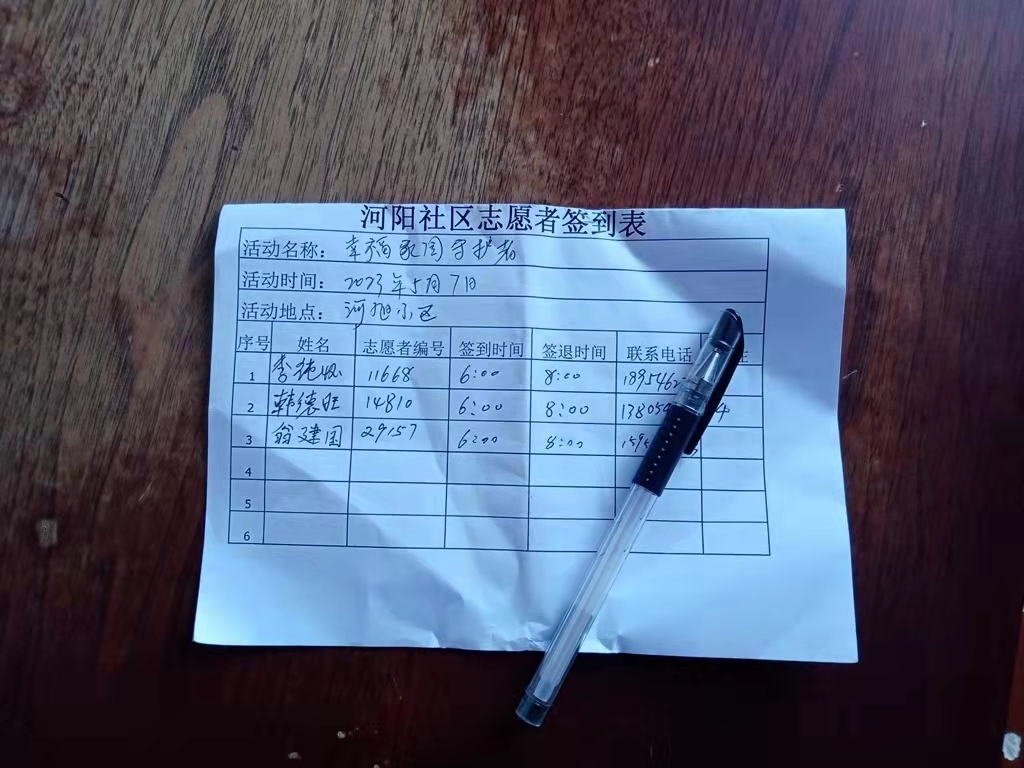 河阳社区志愿者签到表
活动名称： 幸福家园守护者
活动时间： 2023年5月7日
活动地点： 河旭小区
序号 姓名 志愿者编号 签到时间 签退时间 联系电话
1 11668 6:00 8:00 1895462
2 韩德旺 14810 6:00 8:00 13805 4
3 翁建国 29157 6:00 8:00 159
4
5
6